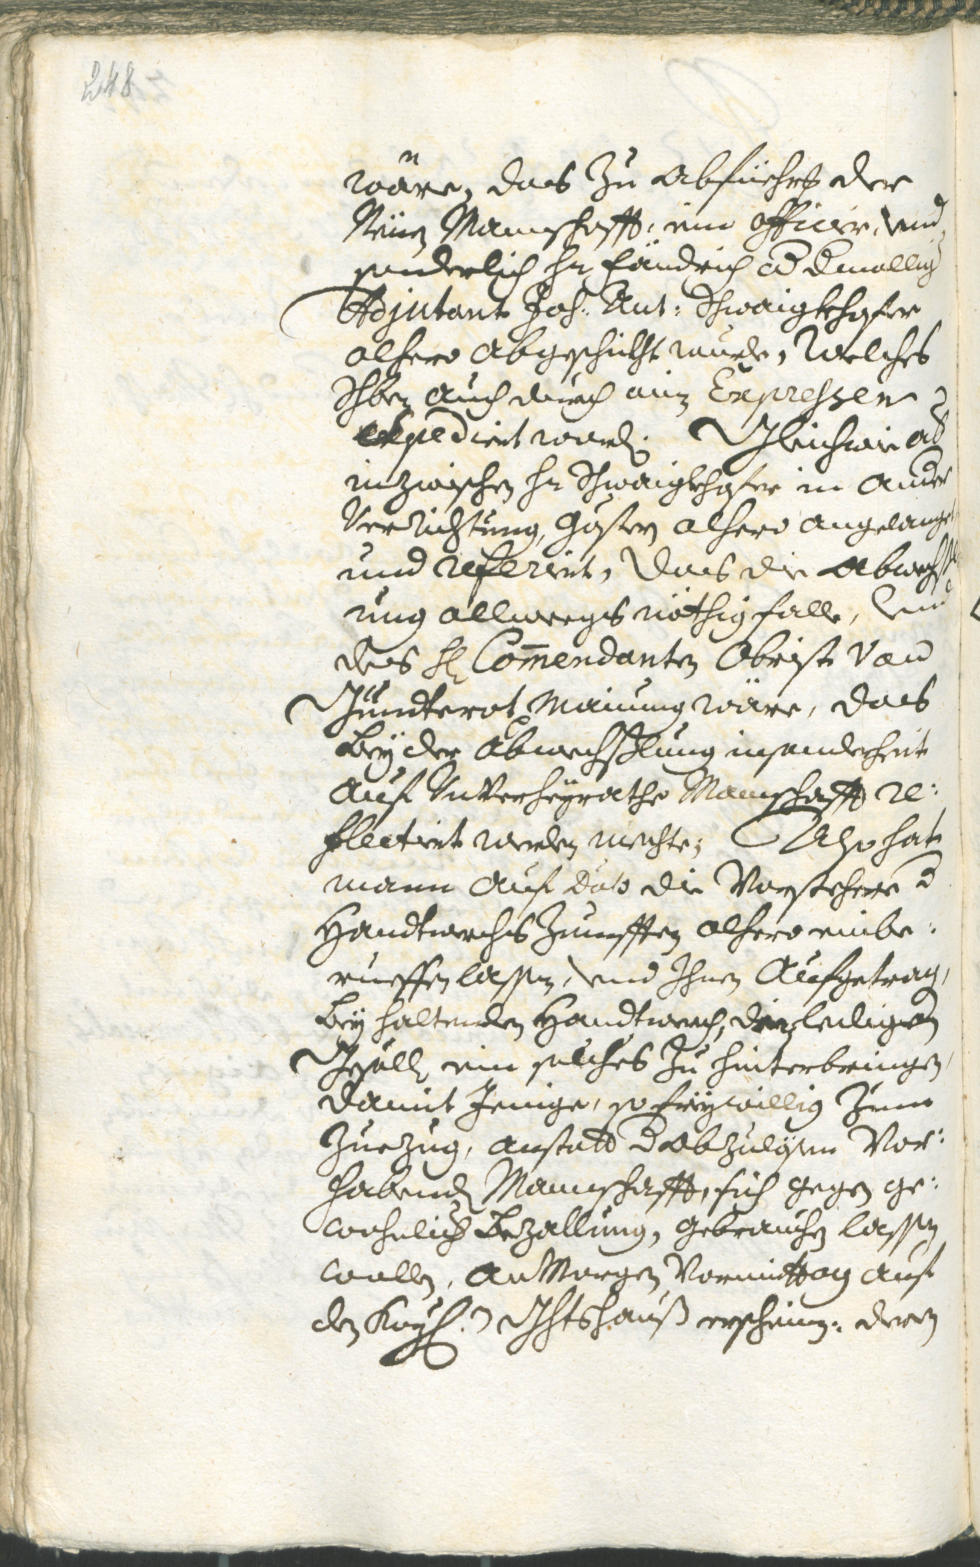 248
wäre, das zu abfüehrg der
Neuen Mannschafft, ein officier, und
sonderlich H: Fändrich und
Adjutant Joh: Ant: Schwaigkhofer
alhero abgeschickht wurde, welches
Schreiben auch durch ainen Expressen
expedirt worden. Gleichwie
inzwischen H: Schwaigkhofer in ander
Verrichtung, gestern alhero angelangt
und referirt, das die Abwechsl-
ung allweegs nöthig falle, und
des H: Com̄endanten Obrist von
Mainung wäre, das
bey der Abwechslung insonderheit
auf Unverheyrathe Mannschafft re:
flectirt werden mechte; Also hat
mann auf dato die Vorstehere d
Handtwerchs Zunfften alhero einbe:
rueffen lassen, und Ihnen aufgetragen,
bey haltenden Handtwerch, den ledigen
Gesellen ein solches zu hinterbringen,
damit Jenige, so freywillig zum
Zuezug, anstatt d abzulesen Vor:
habenden Mannschafft, sich gegen ge:
wohnlicher Bezallung, gebrauchen lassen
wollen, an Morgen Vormittag auf
den Rathshauß erscheinen: deren